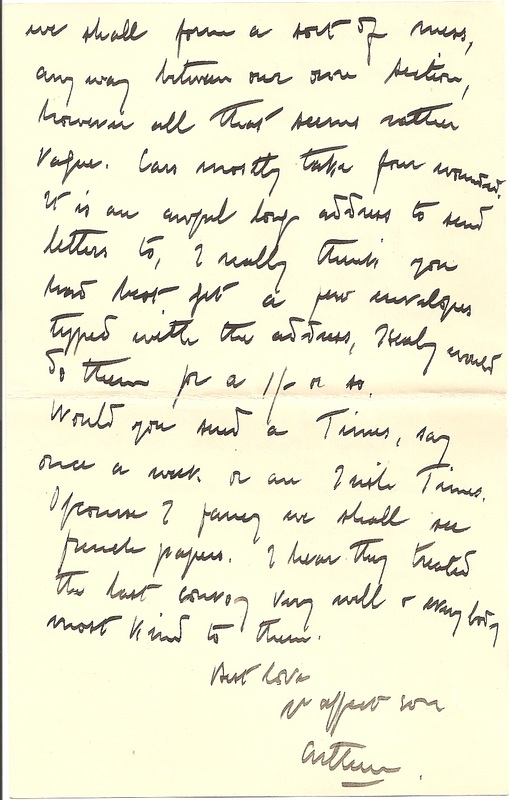 we shall form a sort of mess,
any way between our own section,
however all that seems rather
vague. Cars mostly take four wounded.
It is an awful long address to send
letters to, I really think you
had best get a few envelopes
typed with the address, Healy would
do them for a 1/- or so.
Would you send a Times, say
once a week or an Irish Times.
Ofcourse I fancy we shall see
french papers. I hear they treated
the last convoy very well & everybody
most kind to them.
Best love
yr affect son
Arthur.